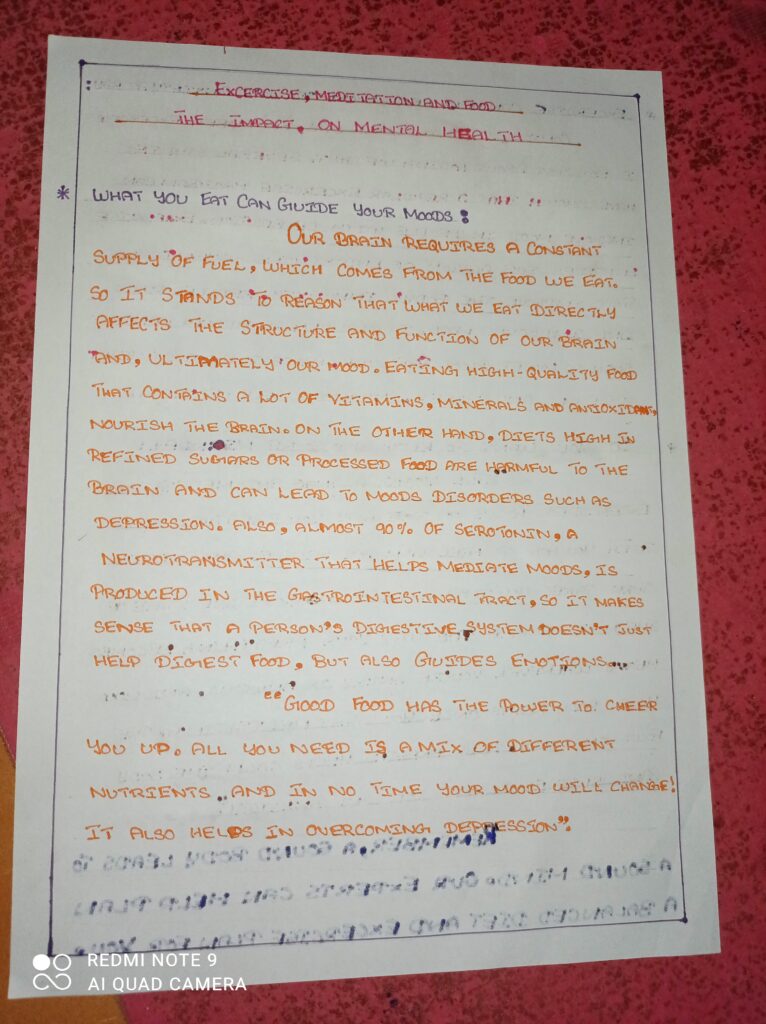 EXCERCISE, MEDITATION AND FOOD
THE IMPACT, ON MENTAL HEALTH
* WHAT YOU EAT CAN GUIDE YOUR MOODS :
OUR BRAIN REQUIRES A CONSTANT
SUPPLY OF FUEL, WHICH COMES FROM THE FOOD WE EAT.
SO IT STANDS TO REASON THAT WHAT WE EAT DIRECTLY
AFFECTS THE STRUCTURE AND FUNCTION OF OUR BRAIN
AND, ULTIMATELY OUR MOOD. EATING HIGH-QUALITY FOOD
THAT CONTAINS A LOT OF VITAMINS, MINERALS AND ANTIOXIDANT,
NOURISH THE BRAIN. ON THE OTHER HAND, DIETS HIGH IN
REFINED SUGARS OR PROCESSED FOOD ARE HARMFUL TO THE
BRAIN AND CAN LEAD TO MOODS DISORDERS SUCH AS
DEPRESSION. ALSO, ALMOST 90% OF SEROTONIN, A
NEUROTRANSMITTER THAT HELPS MEDIATE MOODS, IS
PRODUCED IN THE GASTROINTESTINAL TRACT, SO IT MAKES
SENSE THAT A PERSON'S DIGESTIVE SYSTEM DOESN'T JUST
HELP DIGEST FOOD, BUT ALSO GUIDES EMOTIONS...
"GOOD FOOD HAS THE POWER TO CHEER
YOU UP. ALL YOU NEED IS A MIX OF DIFFERENT
NUTRIENTS AND IN NO TIME YOUR MOOD WILL CHANGE!
IT ALSO HELPS IN OVERCOMING DEPRESSION".
A SOUND BODY LEADS TO
A SOUND OUR EXPERTS CAN HELP PLAN
A BALANCED DIET AND EXCERCISE PLAN FOR YOU.
REDMI NOTE 9
AI QUAD CAMERA